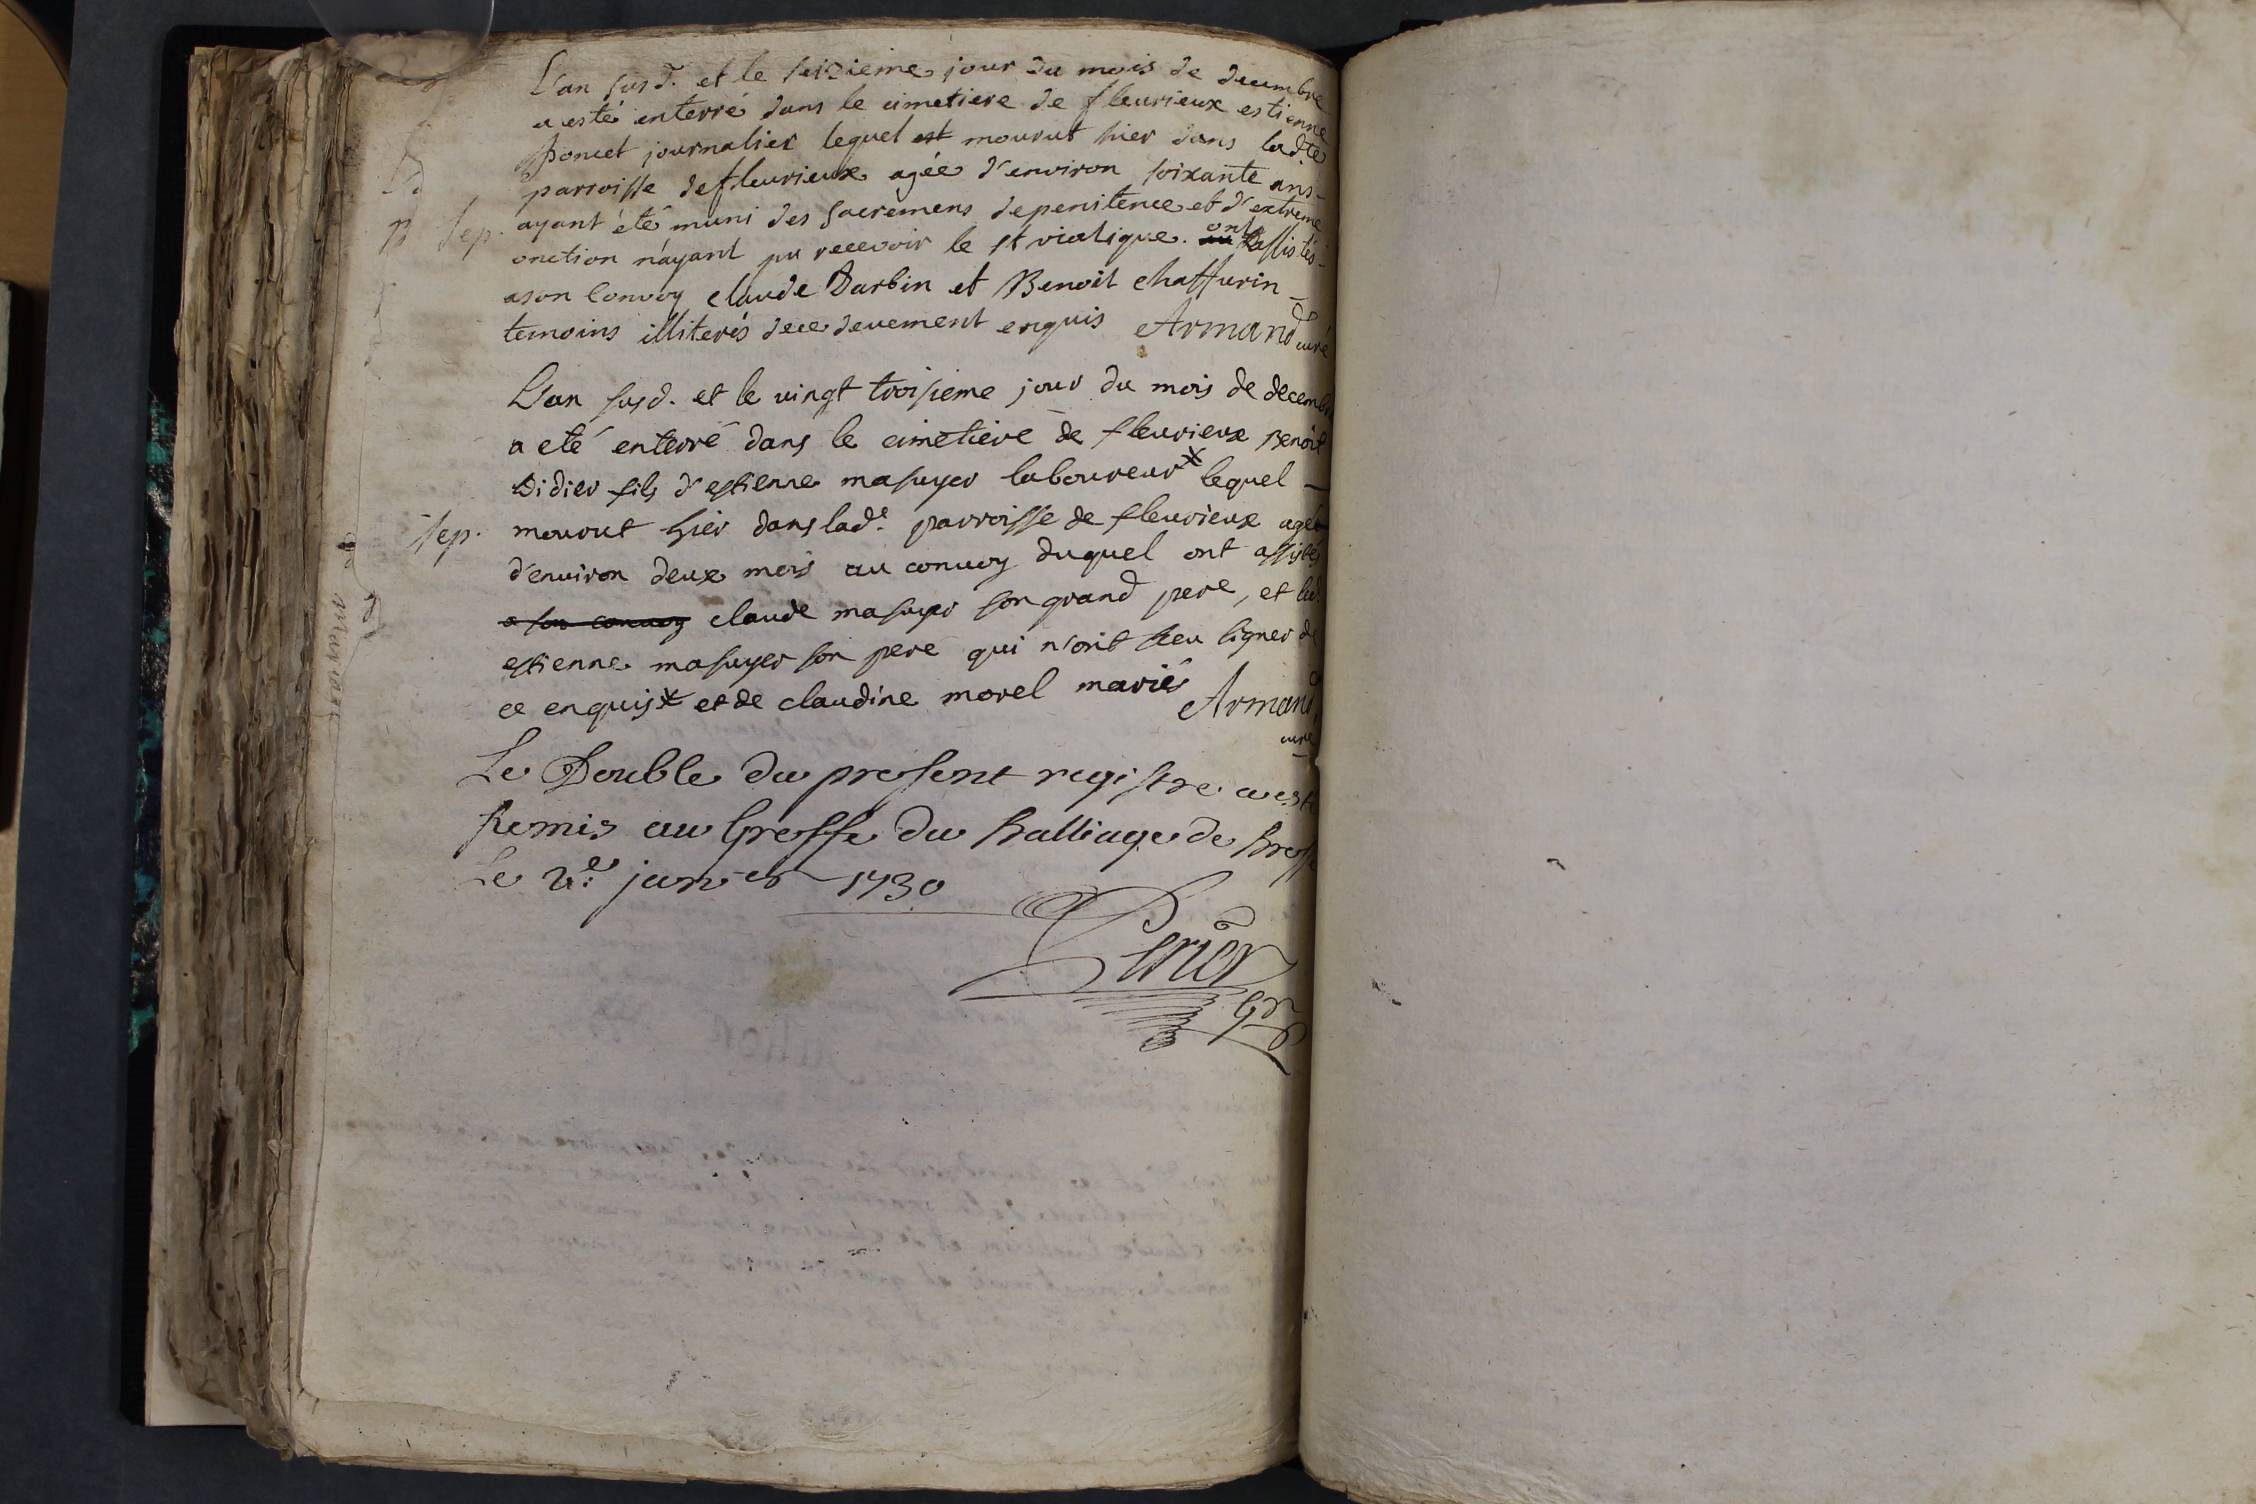 L'an susd. et le seizieme jour du mois de decembre
a esté enterré dans le cimetiere de fleurieux estienne
poncet journalier lequel est mourut hier dans lad.te
parroisse de fleurieux agée d'environ soixante ans
Sep. ayant été muni des sacremens de penitence et d'extreme
onction n'ayant pu recevoir le st viatique. ont assistés
a son convoy claude Darbin et Benoit chaffurin
temoins illiterés de ce deuement enquis Armand curé
L'an susd. et le vingt troisieme jour du mois de decembre
a eté enterré dans le cimetiere de fleurieux Benoit
Didier fils d'estienne masuyer laboureur * lequel
Sep. mourut hier dans lad.e parroisse de fleurieux agé
d'environ deux mois au convoy duquel ont assistés
a son convoy claude masuyer son grand pere, et led.
estienne masuyer son pere qui n'ont sceu signer de
ce enquis * et de claudine morel mariés Armand
curé
Le Double du present registre a esté
Remis au Greffe du Balliage de Bresse
Le 2.e janvier 1730